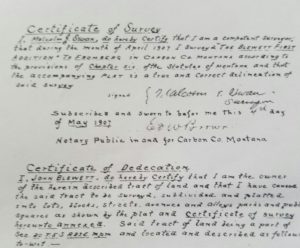 Certificate of Survey
I, Malcolm Swan, do hereby Certify that I am a competent surveyor,
that during the month of April 1907 I Surveyed "The Blewett First
Addition" to Fromberg in Carbon Co. Montana according to
the provisions of Chapter of the Statutes of Montana and that
the accompanying PLAT is a true and correct delineation of
said survey
signed Malcolm
Subscribed and Sworn to before me this day
of May 1907
Notary Public in and for Carbon Co. Montana
Certificate of Dedecation
I, John Blewett, do hereby Certify that I am the owner
of the herein described tract of land and that I have caused
the said tract to be surveyed, subdivided and platted
into lots, blocks, streets, avenues and alleys parks and public
squares as shown by the plat and Certificate of survey
hereunto annexed. Said tract of land being a part of
Sec and located and described as follows
to-wit —